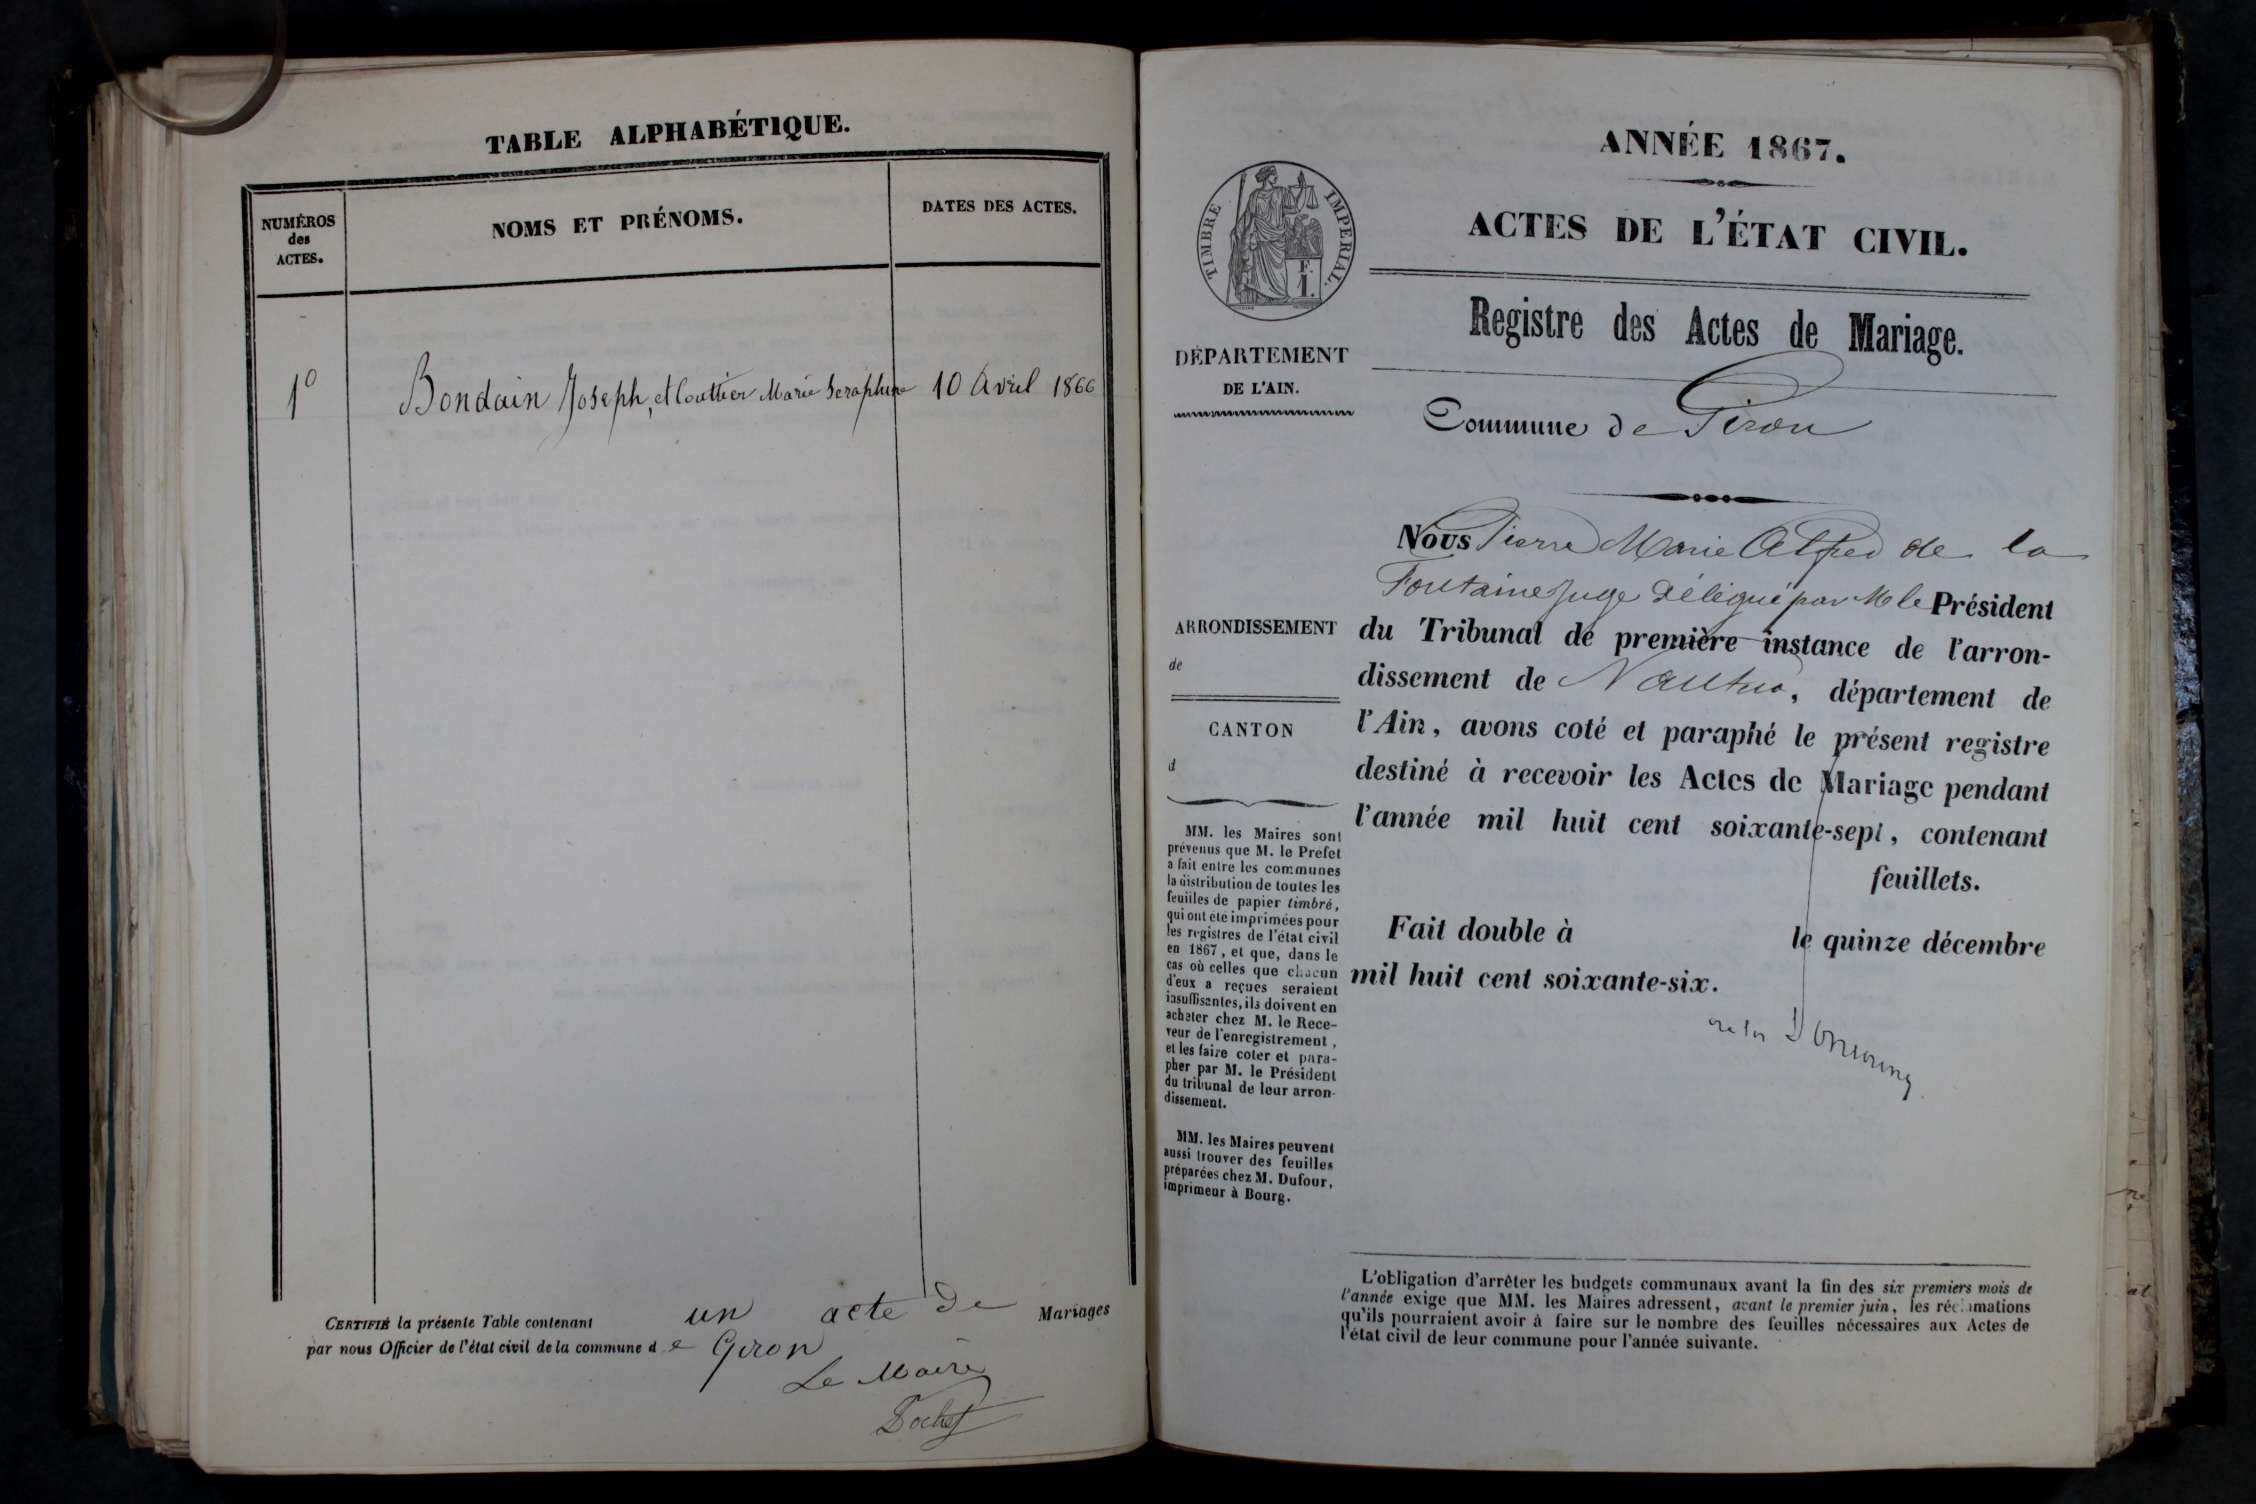 TABLE ALPHABÉTIQUE.
NUMÉROS
des
ACTES.
NOMS ET PRÉNOMS.
DATES DES ACTES.
1º
Bondain Joseph, et Couttier Marie Seraphine
10 Avril 1866
CERTIFIÉ la présente Table contenant un acte de Mariages
par nous Officier de l'état civil de la commune de Giron
Le Maire
ANNÉE 1867.
ACTES DE L'ÉTAT CIVIL.
TIMBRE IMPERIAL.
Registre des Actes de Mariage.
DÉPARTEMENT
DE L'AIN.
Commune de Giron
Nous Pierre Marie Alfred de la
Fontaine juge délégué par M le Président
ARRONDISSEMENT
de
du Tribunal de première instance de l'arron-
dissement de Nantua, département de
CANTON
d
l'Ain, avons coté et paraphé le présent registre
destiné à recevoir les Actes de Mariage pendant
l'année mil huit cent soixante-sept, contenant
feuillets.
Fait double à le quinze décembre
mil huit cent soixante-six.
MM. les Maires sont
prévenus que M. le Préfet
a fait entre les communes
la distribution de toutes les
feuilles de papier timbré,
qui ont été imprimées pour
les registres de l'état civil
en 1867, et que, dans le
cas où celles que chacun
d'eux a reçues seraient
insuffisantes, ils doivent en
acheter chez M. le Rece-
veur de l'enregistrement,
et les faire coter et para-
pher par M. le Président
du tribunal de leur arron-
dissement.
MM. les Maires peuvent
aussi trouver des feuilles
préparées chez M. Dufour,
imprimeur à Bourg.
L'obligation d'arrêter les budgets communaux avant la fin des six premiers mois de
l'année exige que MM. les Maires adressent, avant le premier juin, les réclamations
qu'ils pourraient avoir à faire sur le nombre des feuilles nécessaires aux Actes de
l'état civil de leur commune pour l'année suivante.